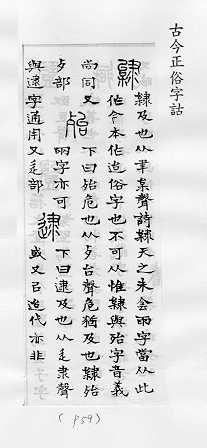 古今正俗字詁
𨽿
𨽿及也从隶枲聲詩𨽿天之未会雨字當从此
作今本作迨俗字也不可从惟𨽿與殆字音義
尚同又
歺部
殆
下曰殆危也从歺台聲危猶及也𨽿殆
兩字亦可
與逮字通用又辵部
逮
下曰逮及也从辵隶聲
或又㠯迨代亦非
(P59)